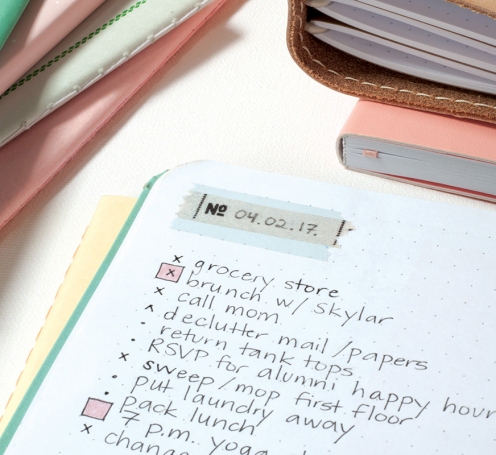 Nº 04.02.17.
x grocery store
x brunch w/ Skylar
x call mom
^ declutter mail/papers
· return tank tops
· RSVP for alumni happy hour
x sweep/mop first floor
· put laundry away
· pack lunch
7 p.m. yoga
x